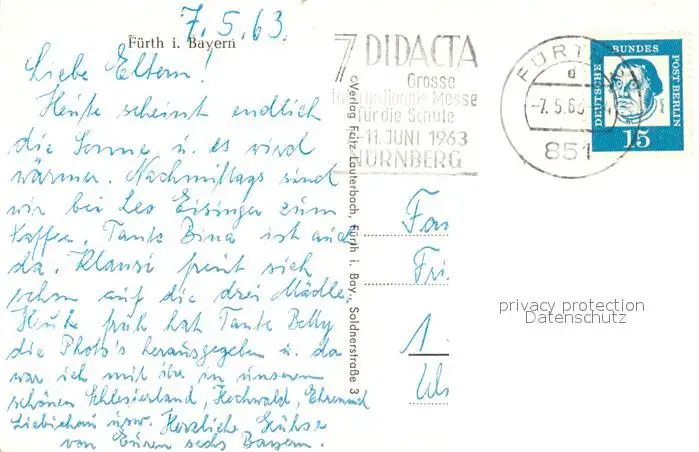 7.5.63.
Fürth i. Bayern
Liebe Eltern!
Heute scheint endlich
die Sonne u. es wird
wärmer. Nachmittags sind
wir bei Leo Eisinger zum
Kaffee. Tante Bina ist auch
da. Klausi freut sich
schon auf die drei Mädle.
Heute früh hat Tante Betty
die Photo's herausgegeben u. da
war ich mit ihr in unserem
schönen Schlesierland, Hochwald,
Liebichau usw. Herzliche Grüße
von Euren sechs Bayern.
©Verlag Fritz Lauterbach, Fürth i. Bay., Soldnerstraße 3
7 DIDACTA
Grosse
internationale Messe
für die Schule
11. JUNI 1963
NÜRNBERG
FÜRTH
d
-7.5.63
851
DEUTSCHE BUNDES POST BERLIN
15
Fri
1
privacy protection
Datenschutz